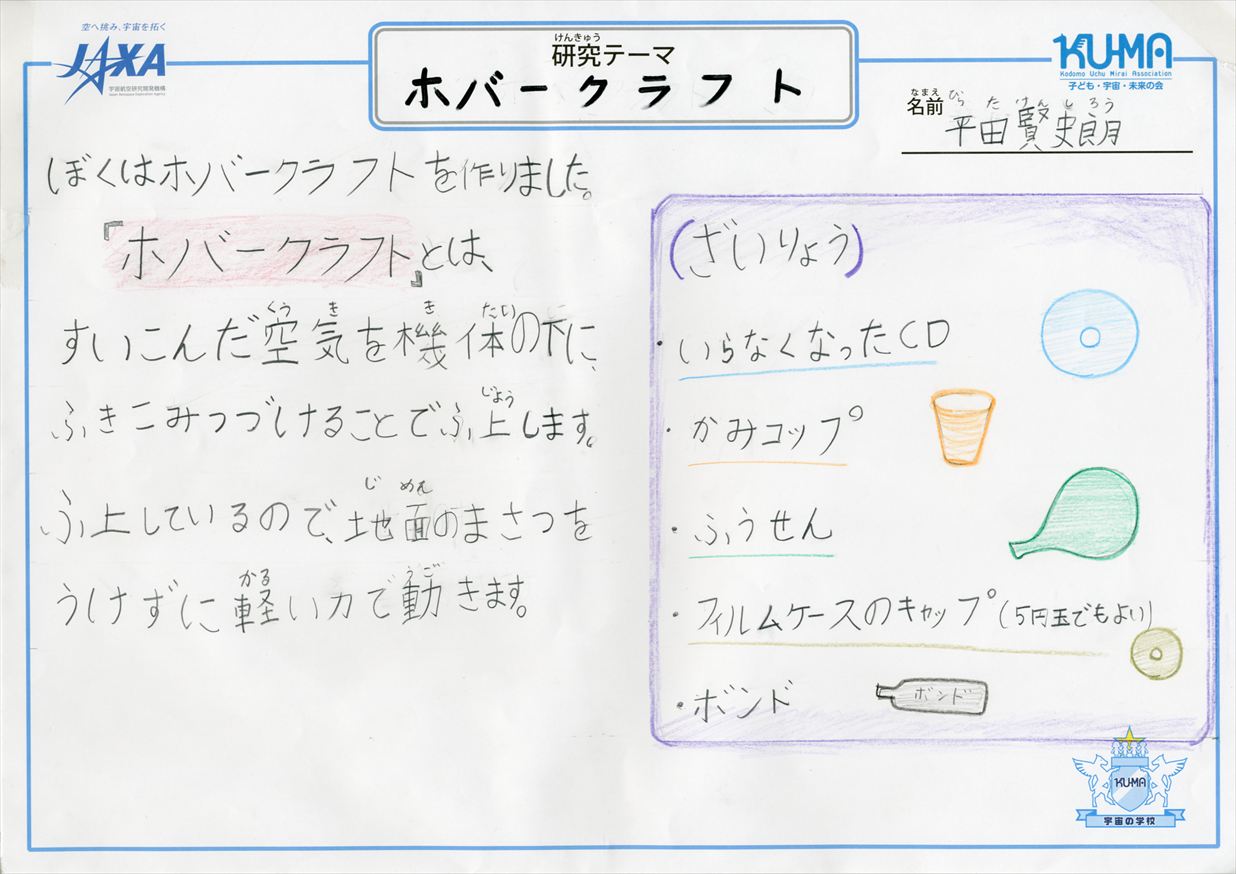 空へ挑み、宇宙を拓く
JAXA
宇宙航空研究開発機構
Japan Aerospace Exploration Agency
けんきゅう
研究テーマ
ホバークラフト
KU-MA
Kodomo Uchu Mirai Association
子ども・宇宙・未来の会
なまえ
名前
ひらたけんしろう
平田賢史朗
ぼくはホバークラフトを作りました。
『ホバークラフト』とは、
くうき き たい
すいこんだ空気を機体の下に、
じょう
ふきこみつづけることでふ上します。
じ めん
ふ上しているので、地面のまさつを
かる うご
うけずに軽い力で動きます。
(ざいりょう)
・いらなくなったCD
・かみコップ
・ふうせん
・フィルムケースのキャップ(5円玉でもよい)
・ボンド
ボンド
KU-MA
宇宙の学校